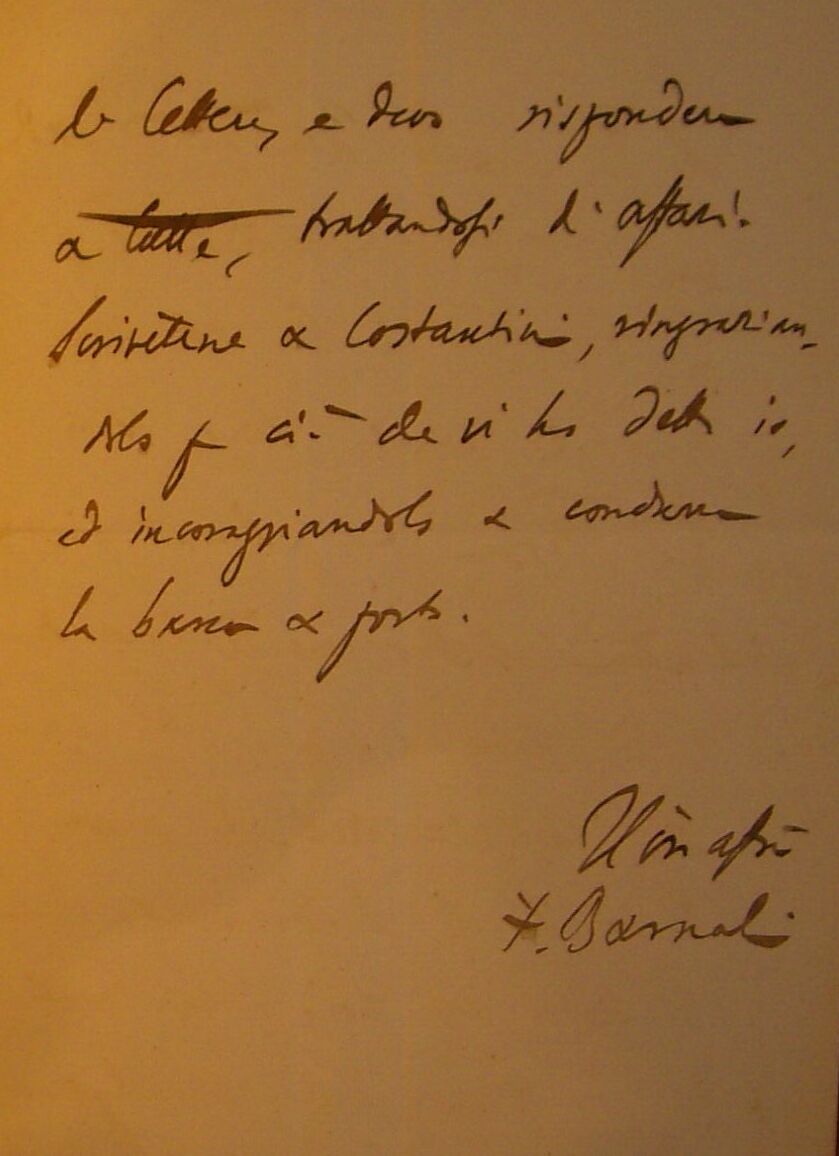 le lettere, e devo rispondere
a tutte, trattandosi di affari.
Scrivetene a Costantini, ringrazian-
dolo p ciò che vi ho detto io,
ed incoraggiandolo a condurre
la barca a porto.
affmo
F. Barnabei